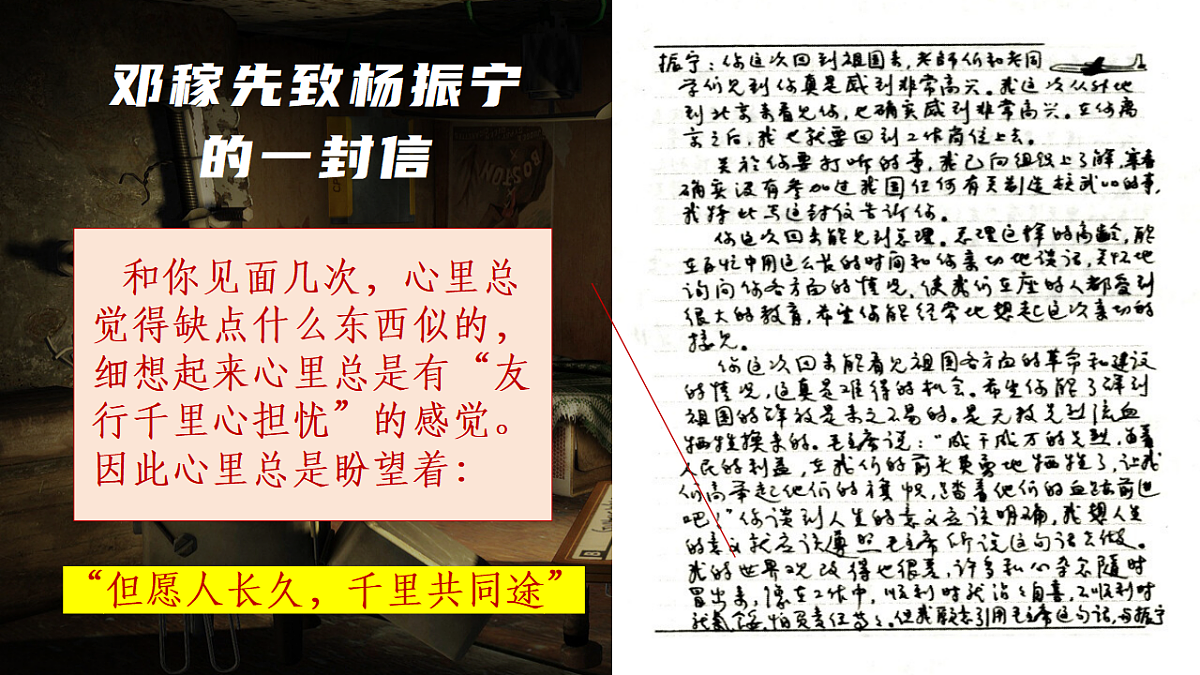 邓稼先致杨振宁
的一封信
和你见面几次，心里总
觉得缺点什么东西似的，
细想起来心里总是有“友
行千里心担忧”的感觉。
因此心里总是盼望着：
“但愿人长久，千里共同途”
BOSTON
振宁：你这次回到祖国来，老师们和老同
学们见到你真是感到非常高兴。我这次从外地
到北京来看见你，也确实感到非常高兴。在你离
京之后，我也就要回到工作岗位上去。
关于你要打听的事，我已向组织上了解，寒春
确实没有参加过我国任何有关制造核武器的事，
我特此写这封信告诉你。
你这次回来能见到总理。总理这样的高龄，能
在百忙中用这么长的时间和你亲切地谈话，关怀地
询问你各方面的情况，使我们在座的人都受到
很大的教育，希望你能经常地想起这次亲切的
接见。
你这次回来能看见祖国各方面的革命和建设
的情况，这真是难得的机会。希望你能了解到
祖国的解放是来之不易的。是无数先烈流血
牺牲换来的。毛主席说：“成千成万的先烈，为着
人民的利益，在我们的前头英勇地牺牲了，让我
们高举起他们的旗帜，踏着他们的血迹前进
吧！”你谈到人生的意义应该明确，我想人生
的意义就应该遵照毛主席所说这句话去做。
我的世界观改得也很差，许多私心杂念随时
冒出来，像在工作中，顺利时就沾沾自喜，不顺利时
就气馁，怕负责任等等。但我愿意引用毛主席这句话，与振宁